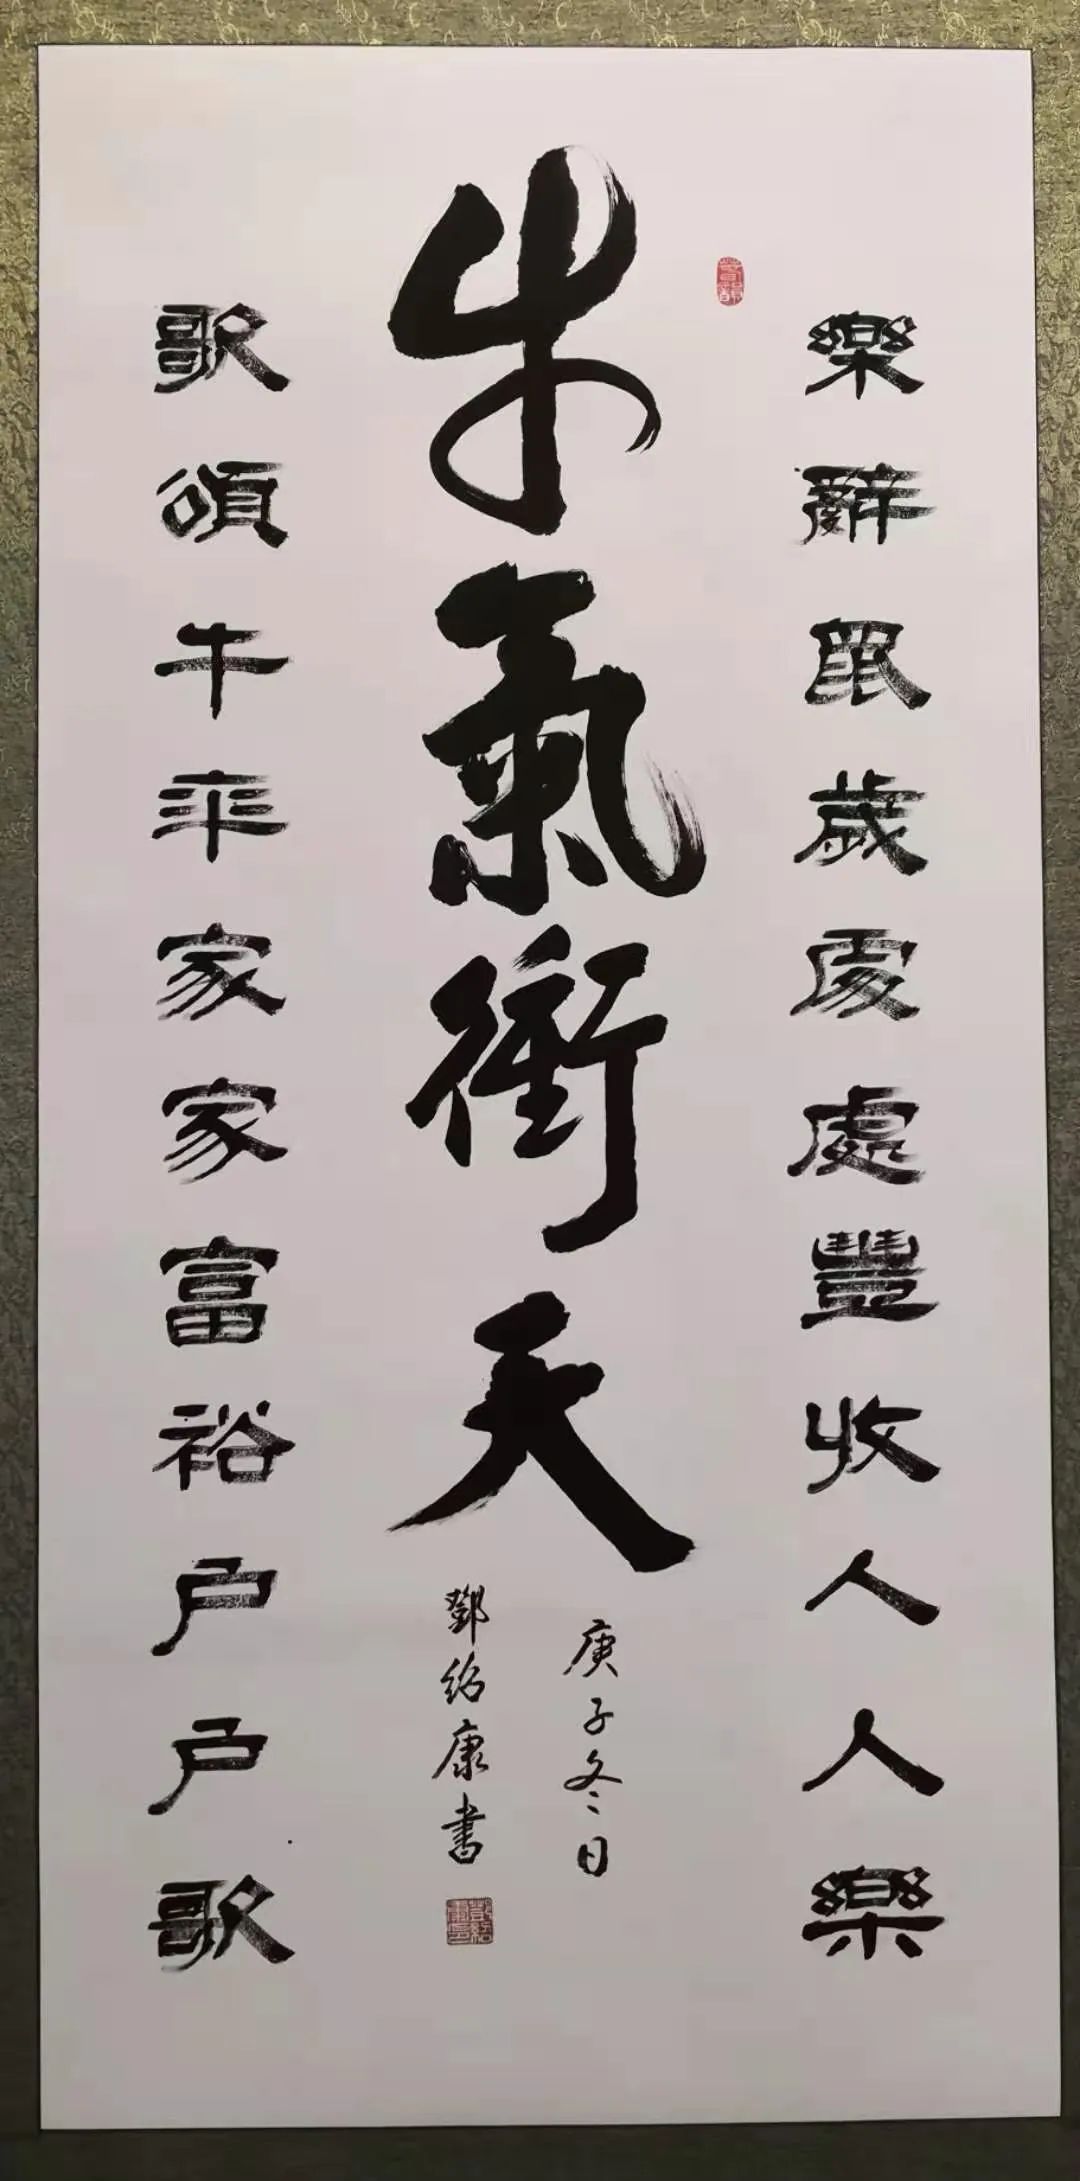 樂辭鼠歲處處豐收人人樂
牛氣衝天
歌頌牛年家家富裕户户歌
庚子冬日
鄧紹康書